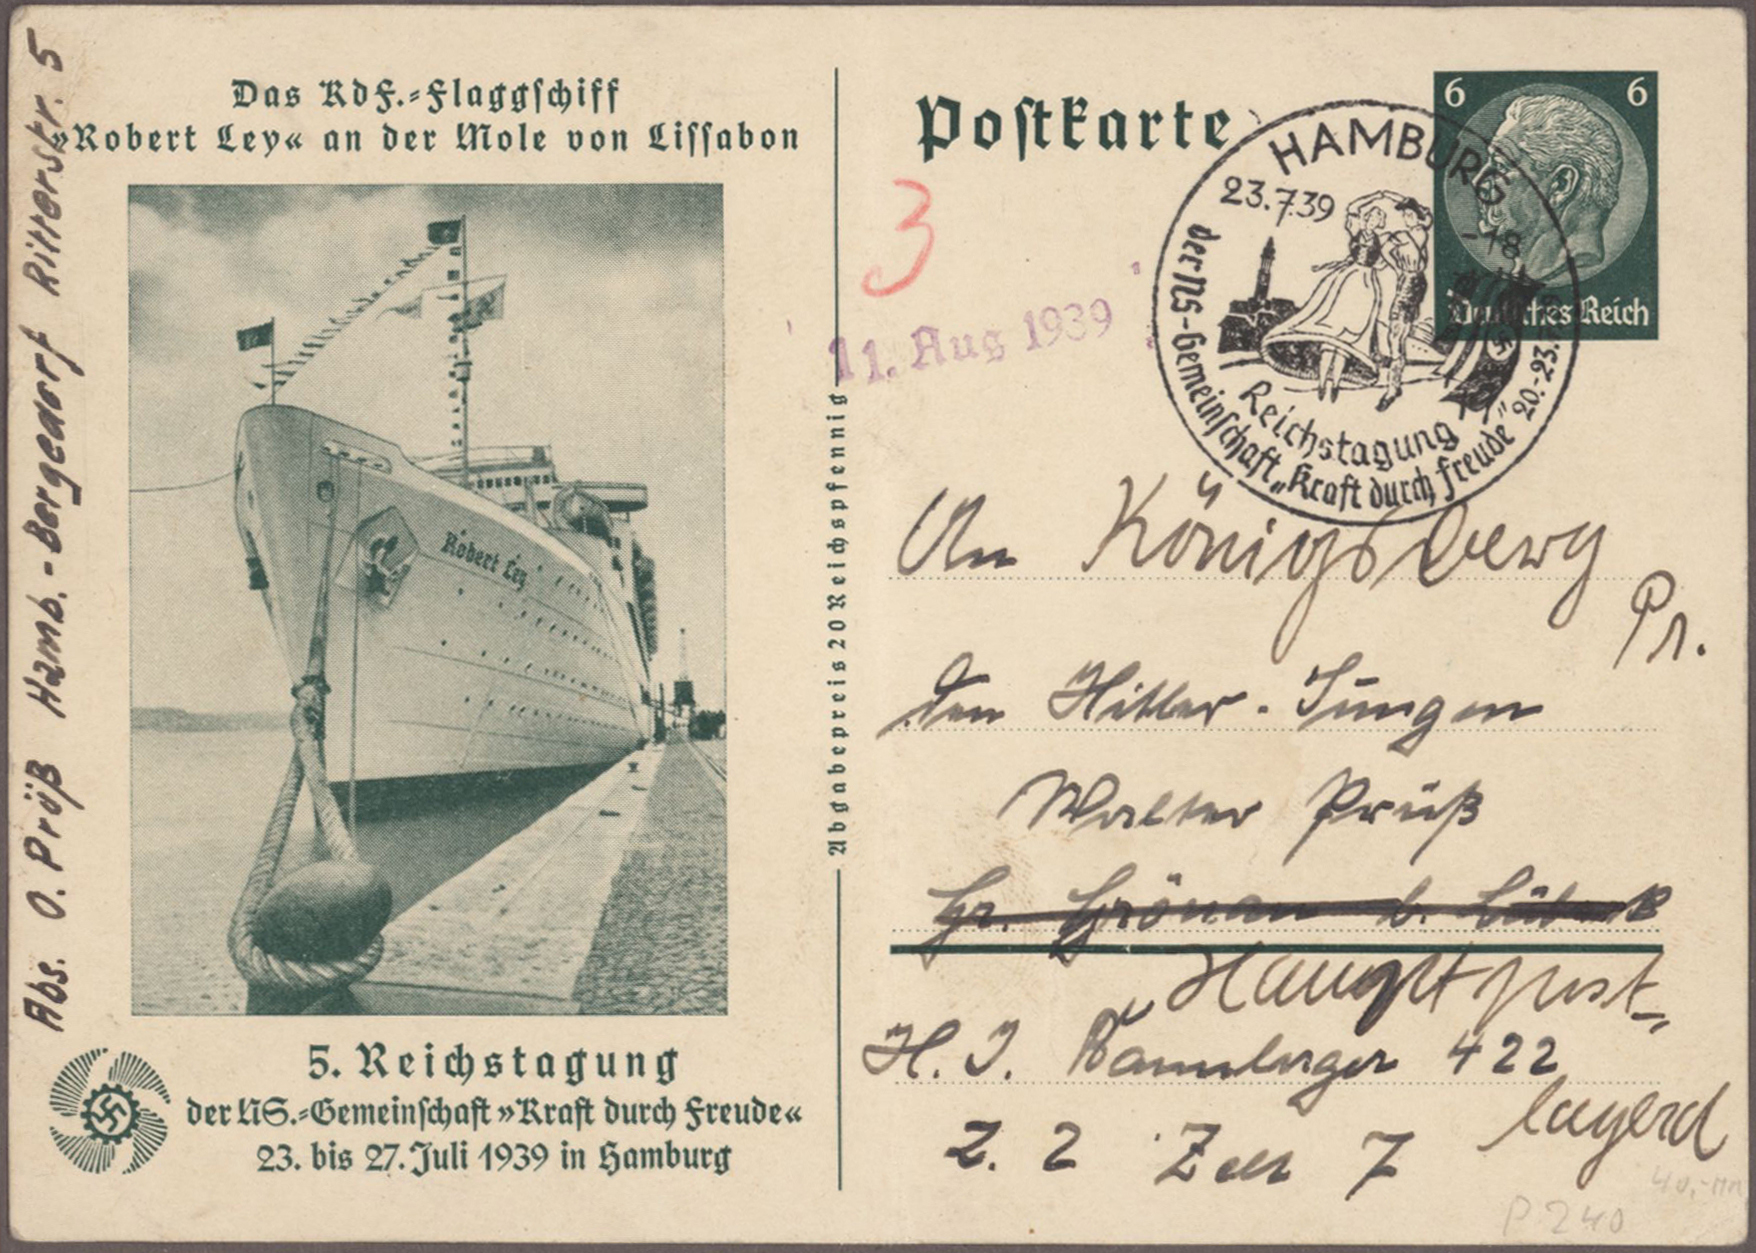 Das KdF.-Flaggschiff
»Robert Ley« an der Mole von Lissabon
Robert Ley
5. Reichstagung
der NS.-Gemeinschaft »Kraft durch Freude«
23. bis 27. Juli 1939 in Hamburg
Abs. O. Prüß Hamb.-Bergedorf Ritterstr. 5
Abgabepreis 20 Reichspfennig
Postkarte
6 6
Deutsches Reich
HAMBURG
23.7.39 -18
Reichstagung
der NS-Gemeinschaft „Kraft durch Freude” 20.-23.
3
11. Aug 1939
An Königsberg
Pr.
den Hitler-Jungen
Walter Prüß
Gr. Grönau b. Lübeck
Hauptpost-
H. J. 422
lagernd
Z. 2 Zelt 7
40,-
P 240